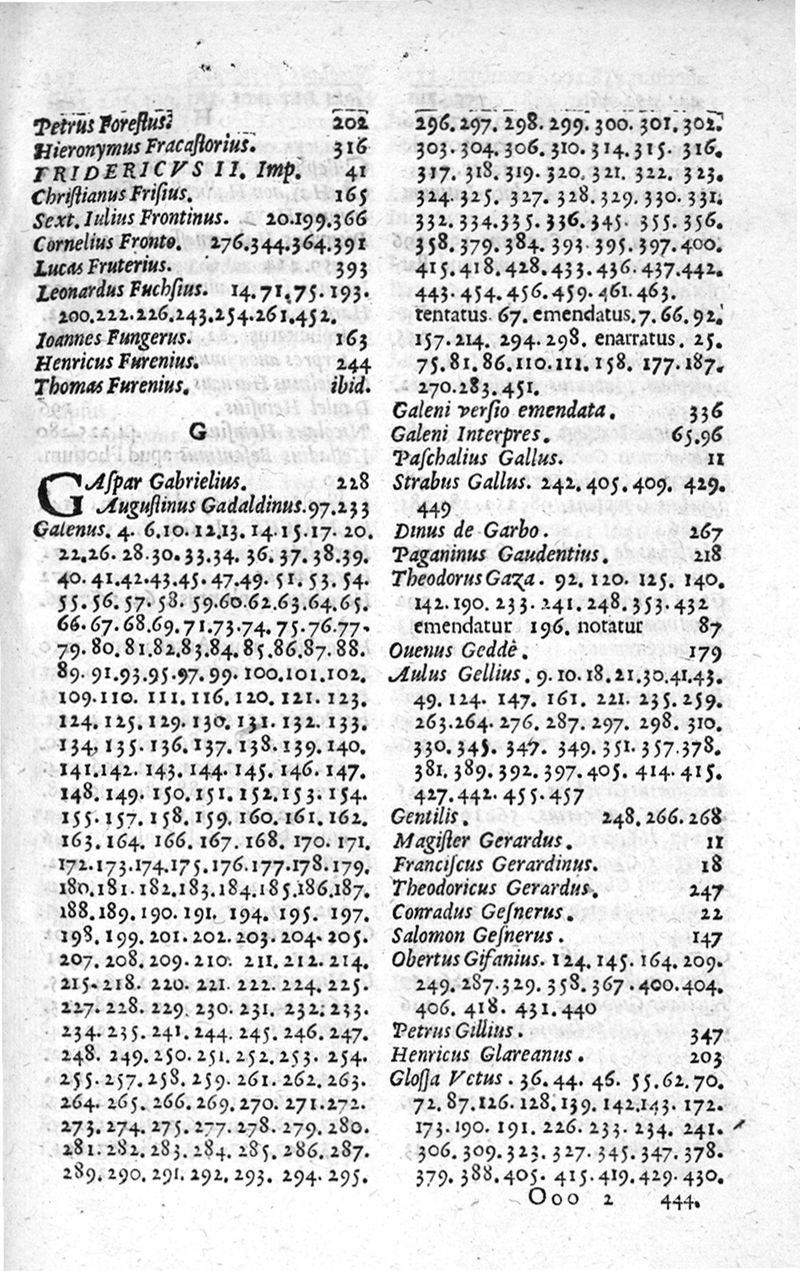 Petrus Forestus. 202
Hieronymus Fracastorius. 316
FRIDERICVS II. Imp. 41
Christianus Frisius. 165
Sext. Iulius Frontinus. 20.199.366
Cornelius Fronto. 276.344.364.391
Lucas Fruterius. 393
Leonardus Fuchsius. 14.71.75.193.
200.222.226.243.254.261.452.
Ioannes Fungerus. 163
Henricus Furenius. 244
Thomas Furenius. ibid.
G
GAspar Gabrielius. 228
Augustinus Gadaldinus.97.233
Galenus. 4. 6.10.12.13.14.15.17.20.
22.26.28.30.33.34.36.37.38.39.
40.41.42.43.45.47.49.51.53.54.
55.56.57.58.59.60.62.63.64.65.
66.67.68.69.71.73.74.75.76.77.
79.80.81.82.83.84.85.86.87.88.
89.91.93.95.97.99.100.101.102.
109.110. 111.116.120.121.123.
124.125.129.130.131.132.133.
134.135.136.137.138.139.140.
141.142.143.144.145.146.147.
148.149.150.151.152.153.154.
155.157.158.159.160.161.162.
163.164.166.167.168.170.171.
172.173.174.175.176.177.178.179.
180.181.182.183.184.185.186.187.
188.189.190.191.194.195.197.
198.199.201.202.203.204.205.
207.208.209.210.211.212.214.
215.218.220.221.222.224.225.
227.228.229.230.231.232.233.
234.235.241.244.245.246.247.
248.249.250.251.252.253.254.
255.257.258.259.261.262.263.
264.265.266.269.270.271.272.
273.274.275.277.278.279.280.
281.282.283.284.285.286.287.
289.290.291.292.293.294.295.
296.297.298.299.300.301.302.
303.304.306.310.314.315.316.
317.318.319.320.321.322.323.
324.325.327.328.329.330.331.
332.334.335.336.345.355.356.
358.379.384.393.395.397.400.
415.418.428.433.436.437.442.
443.454.456.459.461.463.
tentatus. 67. emendatus.7.66.92.
157.214.294.298. enarratus. 25.
75.81.86.110.111.158.177.187.
270.283.451.
Galeni versio emendata. 336
Galeni Interpres. 65.96
Paschalius Gallus. 11
Strabus Gallus. 242.405.409.429.
449
Dinus de Garbo. 267
Paganinus Gaudentius. 218
Theodorus Gaza. 92.120.125.140.
142.190.233.241.248.353.432
emendatur 196. notatur 87
Ouenus Geddè. 179
Aulus Gellius. 9.10.18.21.30.41.43.
49.124.147.161.221.235.259.
263.264.276.287.297.298.310.
330.345.347.349.351.357.378.
381.389.392.397.405.414.415.
427.442.455.457
Gentilis. 248.266.268
Magister Gerardus. 11
Franciscus Gerardinus. 18
Theodoricus Gerardus. 247
Conradus Gesnerus. 22
Salomon Gesnerus. 147
Obertus Gifanius. 124.145.164.209.
249.287.329.358.367.400.404.
406.418.431.440
Petrus Gillius. 347
Henricus Glareanus. 203
Glossa Vetus. 36.44.46.55.62.70.
72.87.126.128.139.142.143.172.
173.190.191.226.233.234.241.
306.309.323.327.345.347.378.
379.388.405.415.419.429.430.
Ooo 2 444.